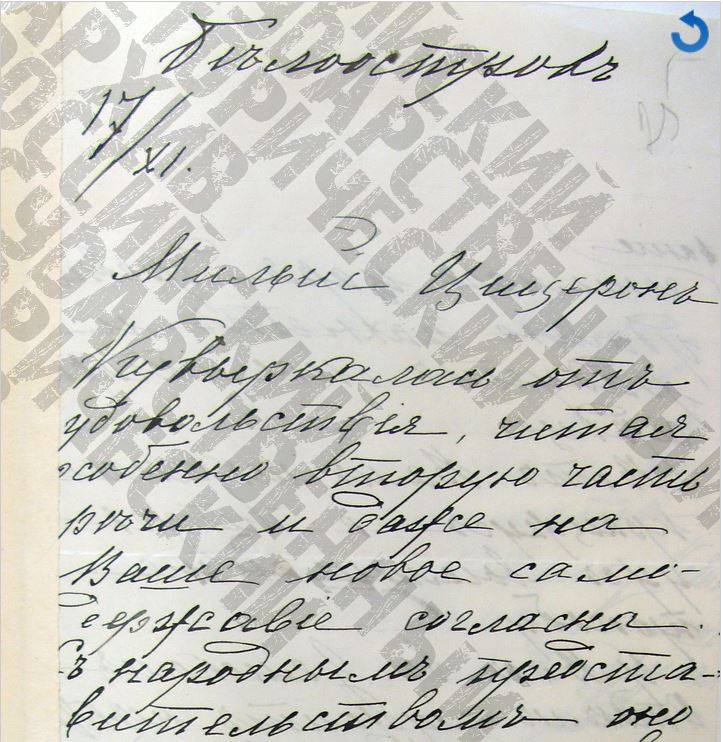 Бѣлоостровъ
17/XI.
Милый Цицеронъ
Кувыркалась отъ
удовольствія, читая
особенно вторую часть
рѣчи и даже на
Ваше новое само-
державіе согласна.
Съ народнымъ предста-
вительствомъ оно